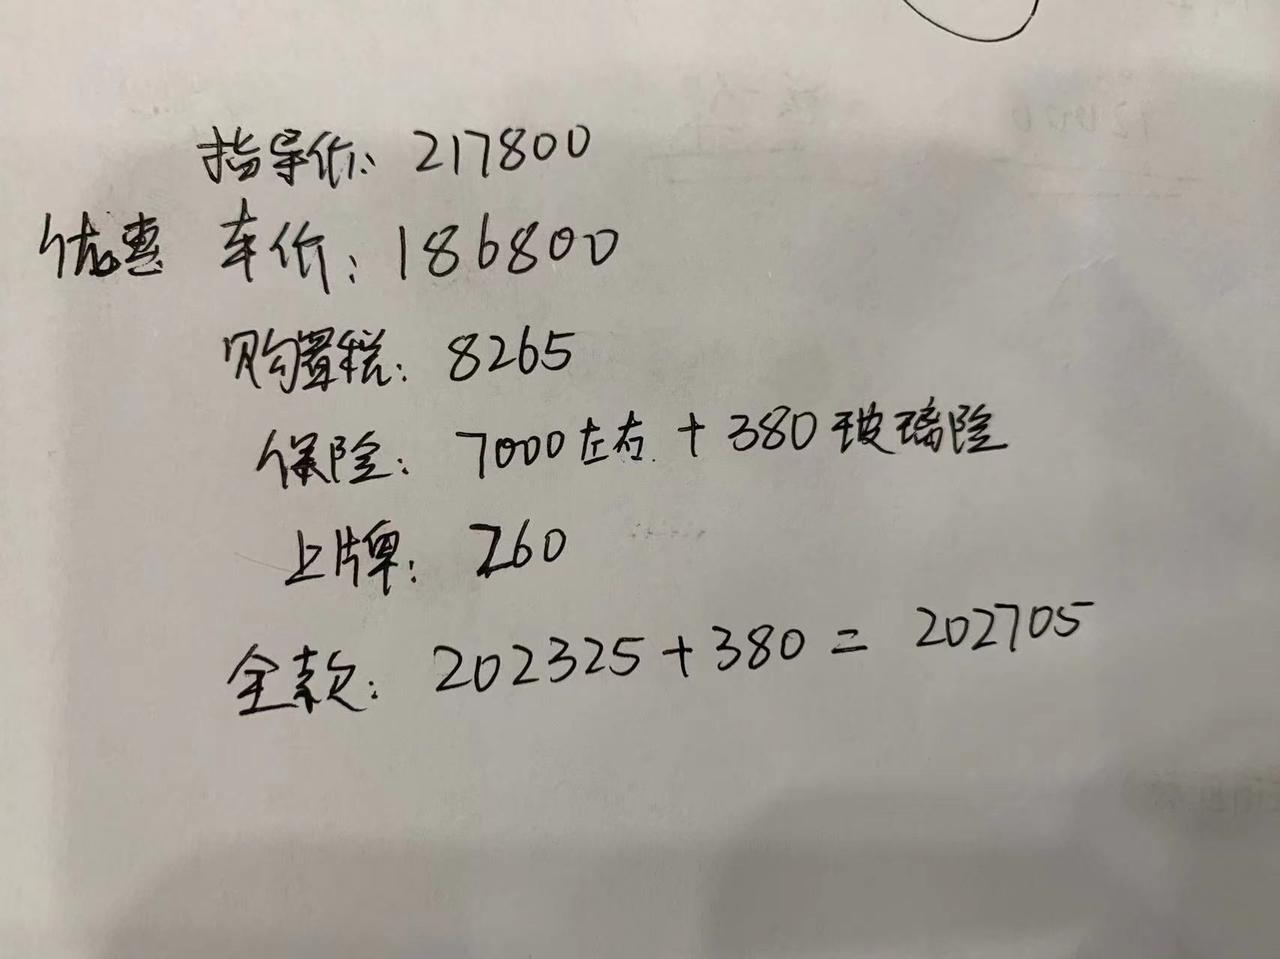 指导价: 217800
优惠 车价: 186800
购置税: 8265
保险: 7000左右 + 380玻璃险
上牌: 260
全款: 202325+380 = 202705